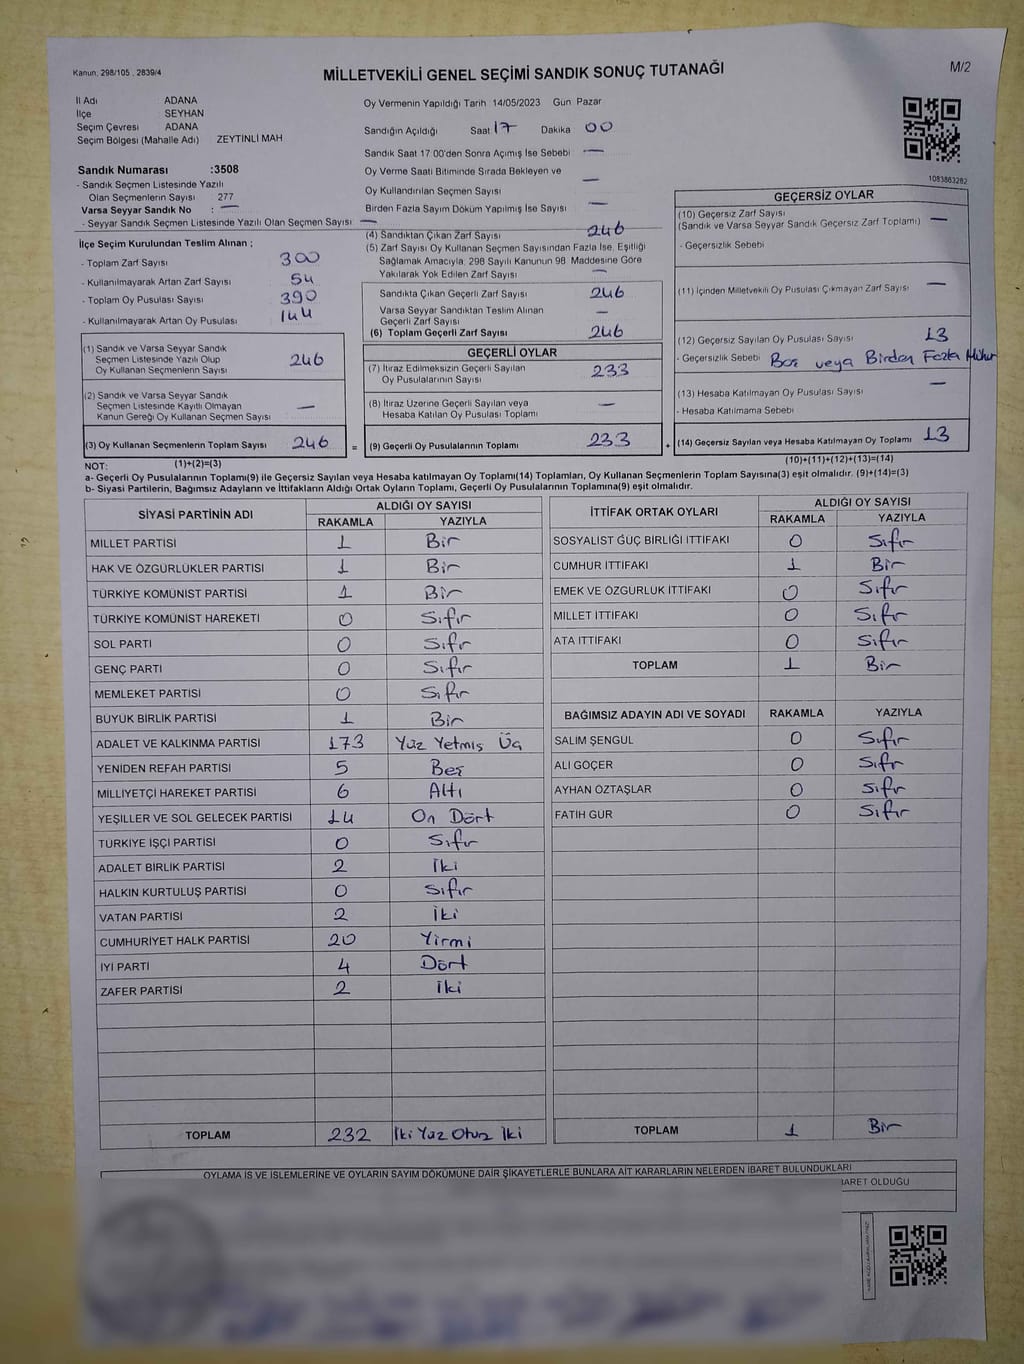 Kanun; 298/105 , 2839/4
MİLLETVEKİLİ GENEL SEÇİMİ SANDIK SONUÇ TUTANAĞI
M/2
İl Adı ADANA
İlçe SEYHAN
Seçim Çevresi ADANA
Seçim Bölgesi (Mahalle Adı) ZEYTİNLİ MAH
Sandık Numarası :3508
- Sandık Seçmen Listesinde Yazılı
Olan Seçmenlerin Sayısı 277
Varsa Seyyar Sandık No : —
- Seyyar Sandık Seçmen Listesinde Yazılı Olan Seçmen Sayısı —
Oy Vermenin Yapıldığı Tarih 14/05/2023 Gün Pazar
Sandığın Açıldığı Saat 17 Dakika 00
Sandık Saat 17 00'den Sonra Açımış İse Sebebi —
Oy Verme Saati Bitiminde Sırada Bekleyen ve
Oy Kullandırılan Seçmen Sayısı —
Birden Fazla Sayım Döküm Yapılmış İse Sayısı —
1083863282
İlçe Seçim Kurulundan Teslim Alınan ;
- Toplam Zarf Sayısı 300
- Kullanılmayarak Artan Zarf Sayısı 54
- Toplam Oy Pusulası Sayısı 390
- Kullanılmayarak Artan Oy Pusulası 144
(1) Sandık ve Varsa Seyyar Sandık
Seçmen Listesinde Yazılı Olup
Oy Kullanan Seçmenlerin Sayısı 246
(2) Sandık ve Varsa Seyyar Sandık
Seçmen Listesinde Kayıtlı Olmayan
Kanun Gereği Oy Kullanan Seçmen Sayısı —
(3) Oy Kullanan Seçmenlerin Toplam Sayısı 246 =
(4) Sandıktan Çıkan Zarf Sayısı 246
(5) Zarf Sayısı Oy Kullanan Seçmen Sayısından Fazla İse, Eşitliği
Sağlamak Amacıyla, 298 Sayılı Kanunun 98 Maddesine Göre
Yakılarak Yok Edilen Zarf Sayısı —
Sandıkta Çıkan Geçerli Zarf Sayısı 246
Varsa Seyyar Sandıktan Teslim Alınan
Geçerli Zarf Sayısı —
(6) Toplam Geçerli Zarf Sayısı 246
GEÇERLİ OYLAR
(7) İtiraz Edilmeksizin Geçerli Sayılan
Oy Pusulalarının Sayısı 233
(8) İtiraz Üzerine Geçerli Sayılan veya
Hesaba Katılan Oy Pusulası Toplamı —
(9) Geçerli Oy Pusulalarının Toplamı 233 +
GEÇERSİZ OYLAR
(10) Geçersiz Zarf Sayısı
(Sandık ve Varsa Seyyar Sandık Geçersiz Zarf Toplamı) —
- Geçersizlik Sebebi
(11) İçinden Milletvekili Oy Pusulası Çıkmayan Zarf Sayısı —
(12) Geçersiz Sayılan Oy Pusulası Sayısı 13
- Geçersizlik Sebebi Boş veya Birden Fazla Mühür
(13) Hesaba Katılmayan Oy Pusulası Sayısı —
- Hesaba Katılmama Sebebi
(14) Geçersiz Sayılan veya Hesaba Katılmayan Oy Toplamı 13
NOT: (1)+(2)=(3)
(10)+(11)+(12)+(13)=(14)
a- Geçerli Oy Pusulalarının Toplamı(9) ile Geçersiz Sayılan veya Hesaba katılmayan Oy Toplamı(14) Toplamları, Oy Kullanan Seçmenlerin Toplam Sayısına(3) eşit olmalıdır. (9)+(14)=(3)
b- Siyasi Partilerin, Bağımsız Adayların ve İttifakların Aldığı Ortak Oyların Toplamı, Geçerli Oy Pusulalarının Toplamına(9) eşit olmalıdır.
SİYASİ PARTİNİN ADI ALDIĞI OY SAYISI
RAKAMLA YAZIYLA
MİLLET PARTİSİ 1 Bir
HAK VE ÖZGÜRLÜKLER PARTİSİ 1 Bir
TÜRKİYE KOMÜNİST PARTİSİ 1 Bir
TÜRKİYE KOMÜNİST HAREKETİ 0 Sıfır
SOL PARTİ 0 Sıfır
GENÇ PARTİ 0 Sıfır
MEMLEKET PARTİSİ 0 Sıfır
BÜYÜK BİRLİK PARTİSİ 1 Bir
ADALET VE KALKINMA PARTİSİ 173 Yüz Yetmiş Üç
YENİDEN REFAH PARTİSİ 5 Beş
MİLLİYETÇİ HAREKET PARTİSİ 6 Altı
YEŞİLLER VE SOL GELECEK PARTİSİ 14 On Dört
TÜRKİYE İŞÇİ PARTİSİ 0 Sıfır
ADALET BİRLİK PARTİSİ 2 İki
HALKIN KURTULUŞ PARTİSİ 0 Sıfır
VATAN PARTİSİ 2 İki
CUMHURİYET HALK PARTİSİ 20 Yirmi
İYİ PARTİ 4 Dört
ZAFER PARTİSİ 2 İki
TOPLAM 232 İki Yüz Otuz İki
İTTİFAK ORTAK OYLARI ALDIĞI OY SAYISI
RAKAMLA YAZIYLA
SOSYALİST GÜÇ BİRLİĞİ İTTİFAKI 0 Sıfır
CUMHUR İTTİFAKI 1 Bir
EMEK VE ÖZGÜRLÜK İTTİFAKI 0 Sıfır
MİLLET İTTİFAKI 0 Sıfır
ATA İTTİFAKI 0 Sıfır
TOPLAM 1 Bir
BAĞIMSIZ ADAYIN ADI VE SOYADI RAKAMLA YAZIYLA
SALİM ŞENGÜL 0 Sıfır
ALİ GÖÇER 0 Sıfır
AYHAN ÖZTAŞLAR 0 Sıfır
FATİH GÜR 0 Sıfır
TOPLAM 1 Bir
OYLAMA İŞ VE İŞLEMLERİNE VE OYLARIN SAYIM DÖKÜMÜNE DAİR ŞİKAYETLERLE BUNLARA AİT KARARLARIN NELERDEN İBARET BULUNDUKLARI
BARET OLDUĞU